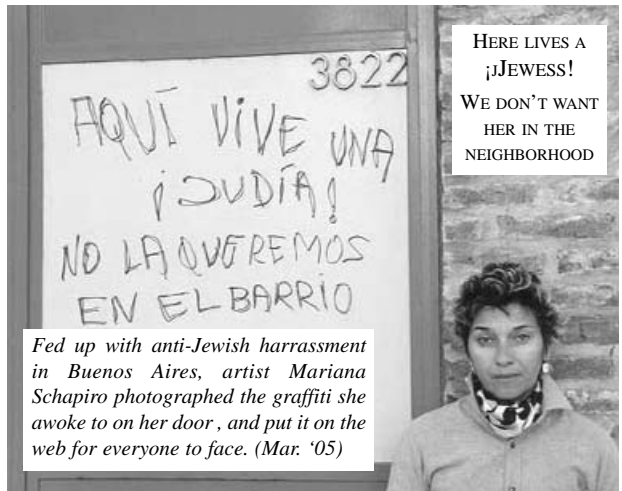 3822
AQUÍ VIVE UNA
¡JUDÍA!
NO LA QUEREMOS
EN EL BARRIO
HERE LIVES A
¡JJEWESS!
WE DON'T WANT
HER IN THE
NEIGHBORHOOD
Fed up with anti-Jewish harrassment
in Buenos Aires, artist Mariana
Schapiro photographed the graffiti she
awoke to on her door , and put it on the
web for everyone to face. (Mar. ‘05)